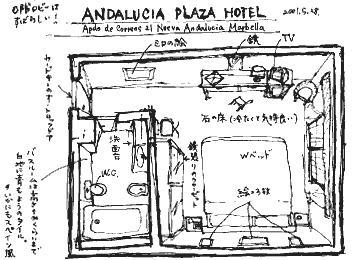 ロビーは
すばらしい!
ANDALUCIA PLAZA HOTEL
Apdo de Correos 21 Nueva Andalucia Marbella
2001.5.28.
ミロの絵
鏡
TV
石の床(冷たくて気持良い)
洗面台
W.C.
Wベッド
絵の3枚
バスルームは高さ
白地に青もようのタイル。
いかにもスペイン風